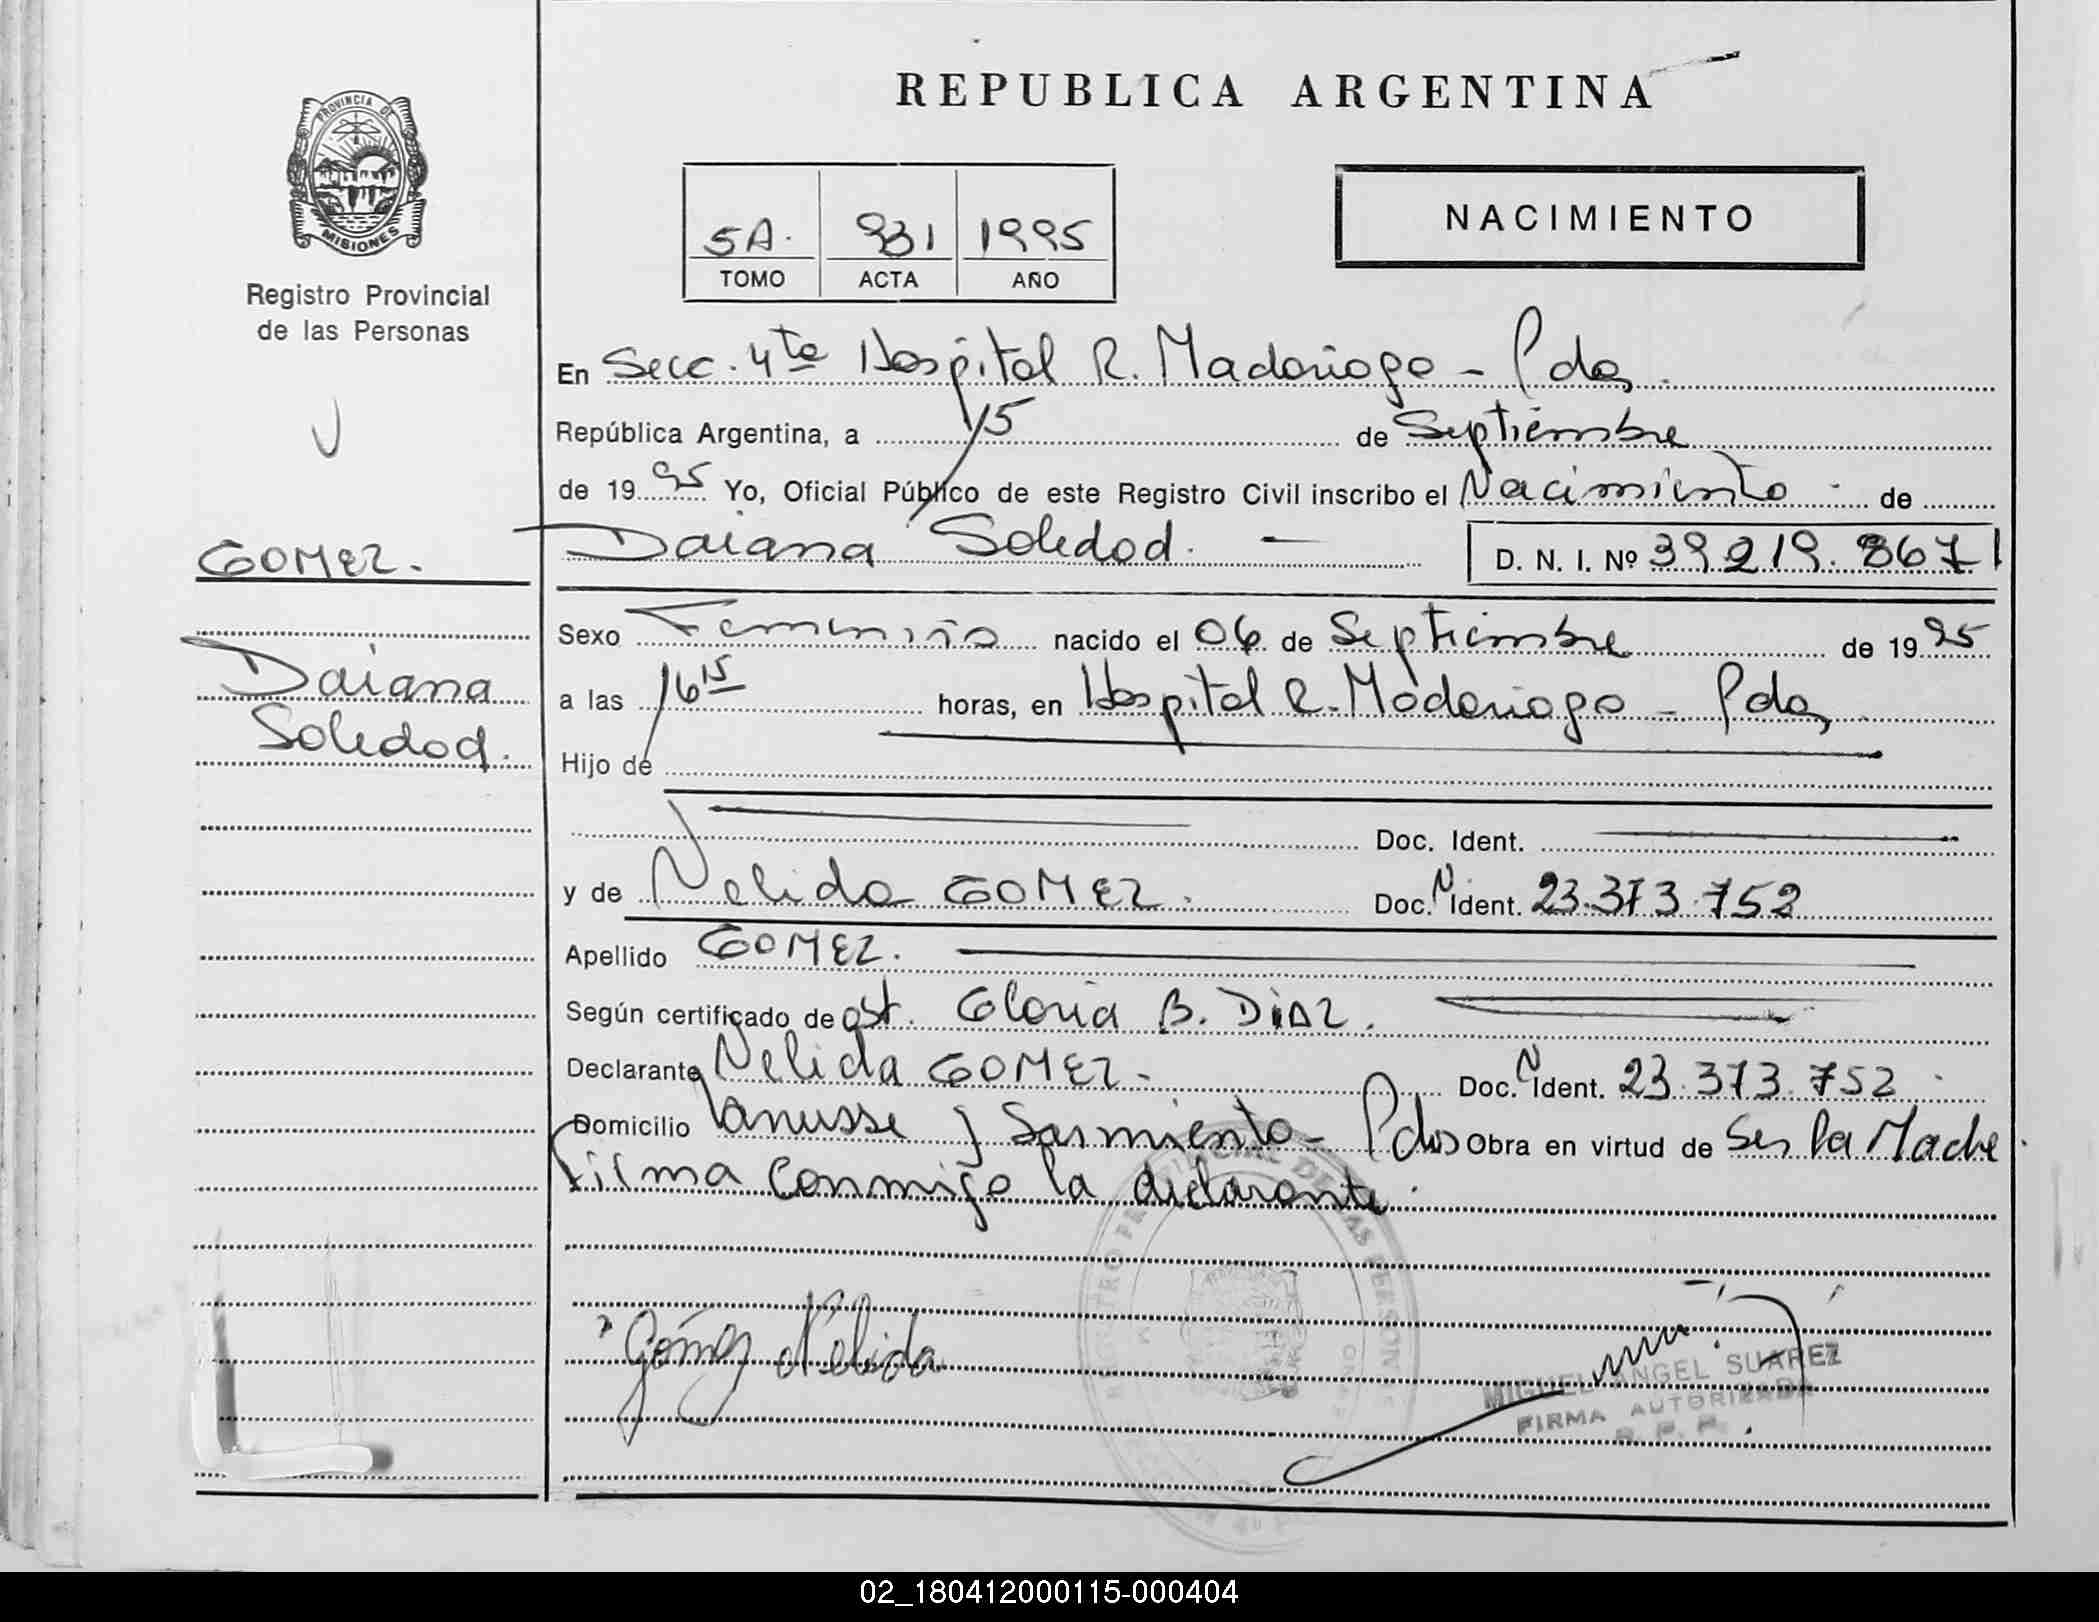 REPUBLICA ARGENTINA
PROVINCIA DE
MISIONES
Registro Provincial
de las Personas
5A. 931 1995
TOMO ACTA AÑO
NACIMIENTO
En Secc. 4ta Hospital R. Madariaga - Pdas.
República Argentina, a 15 de Septiembre
de 1995 Yo, Oficial Público de este Registro Civil inscribo el Nacimiento de
GOMEZ.
Daiana Soledad. — D. N. I. Nº 39.219.867
Daiana
Soledad.
Sexo Femenino nacido el 06 de Septiembre de 1995
a las 16 15 horas, en Hospital R. Madariaga - Pdas
Hijo de
Doc. Ident.
y de Nelida GOMEZ. Doc. N Ident. 23.373.752
Apellido GOMEZ.
Según certificado de ost. Gloria B. DiAZ.
Declarante Nelida GOMEZ. Doc. N Ident. 23.373.752
Domicilio Lanusse y Sarmiento - Pdas Obra en virtud de Ser la Madre.
Firma conmigo la declarante.
Gómez Nelida
MIGUEL ANGEL SUAREZ
FIRMA AUTORIZADA
R. P. P.
02_180412000115-000404